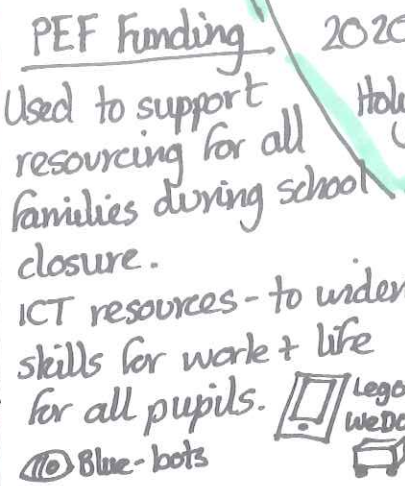 PEF Funding
2020
Used to support
resourcing for all
families during school
closure.
ICT resources - to widen
skills for work + life
for all pupils.
Lego
WeDo
Blue-bots